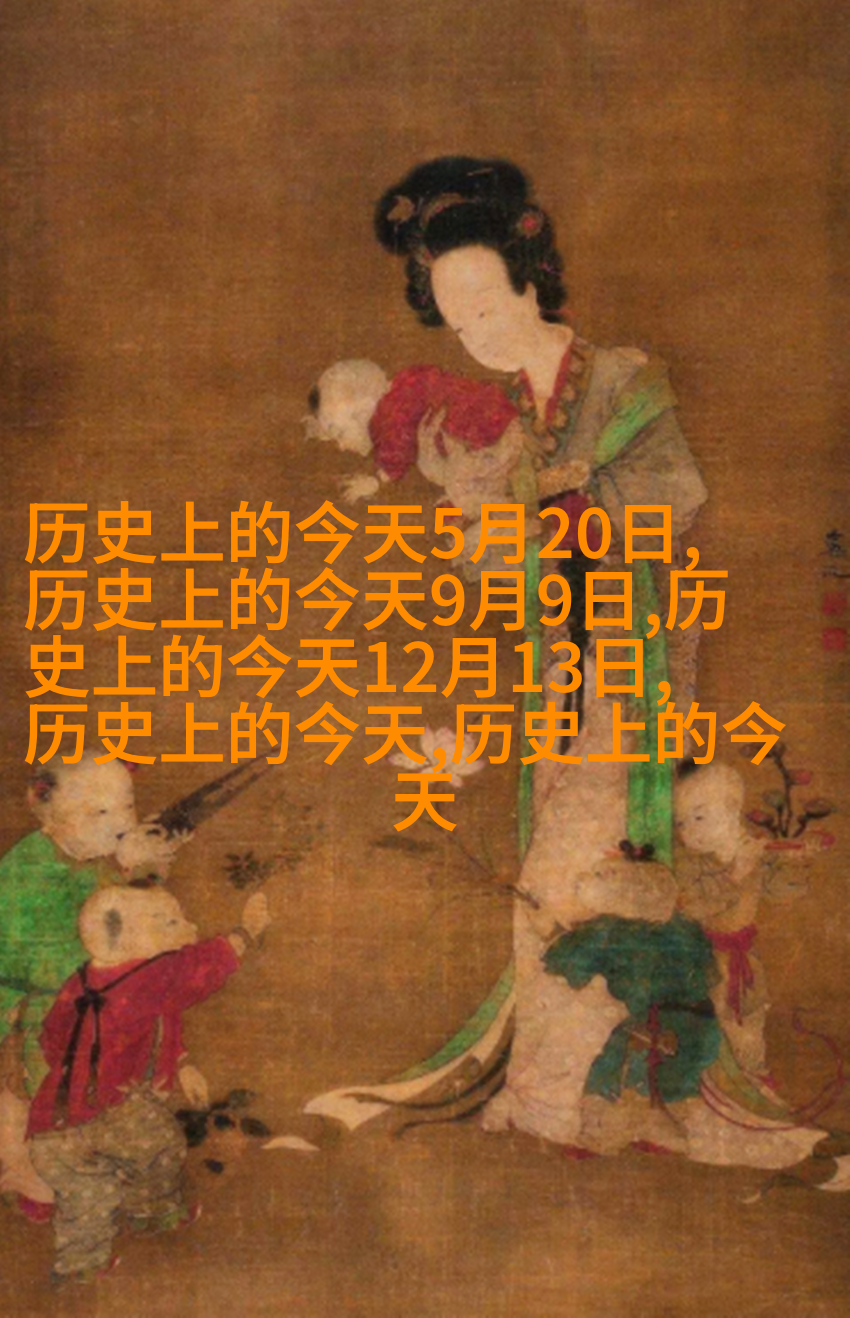 历史上的今天5月20日,
历史上的今天9月9日,历
史上的今天12月13日,
历史上的今天,历史上的今
天